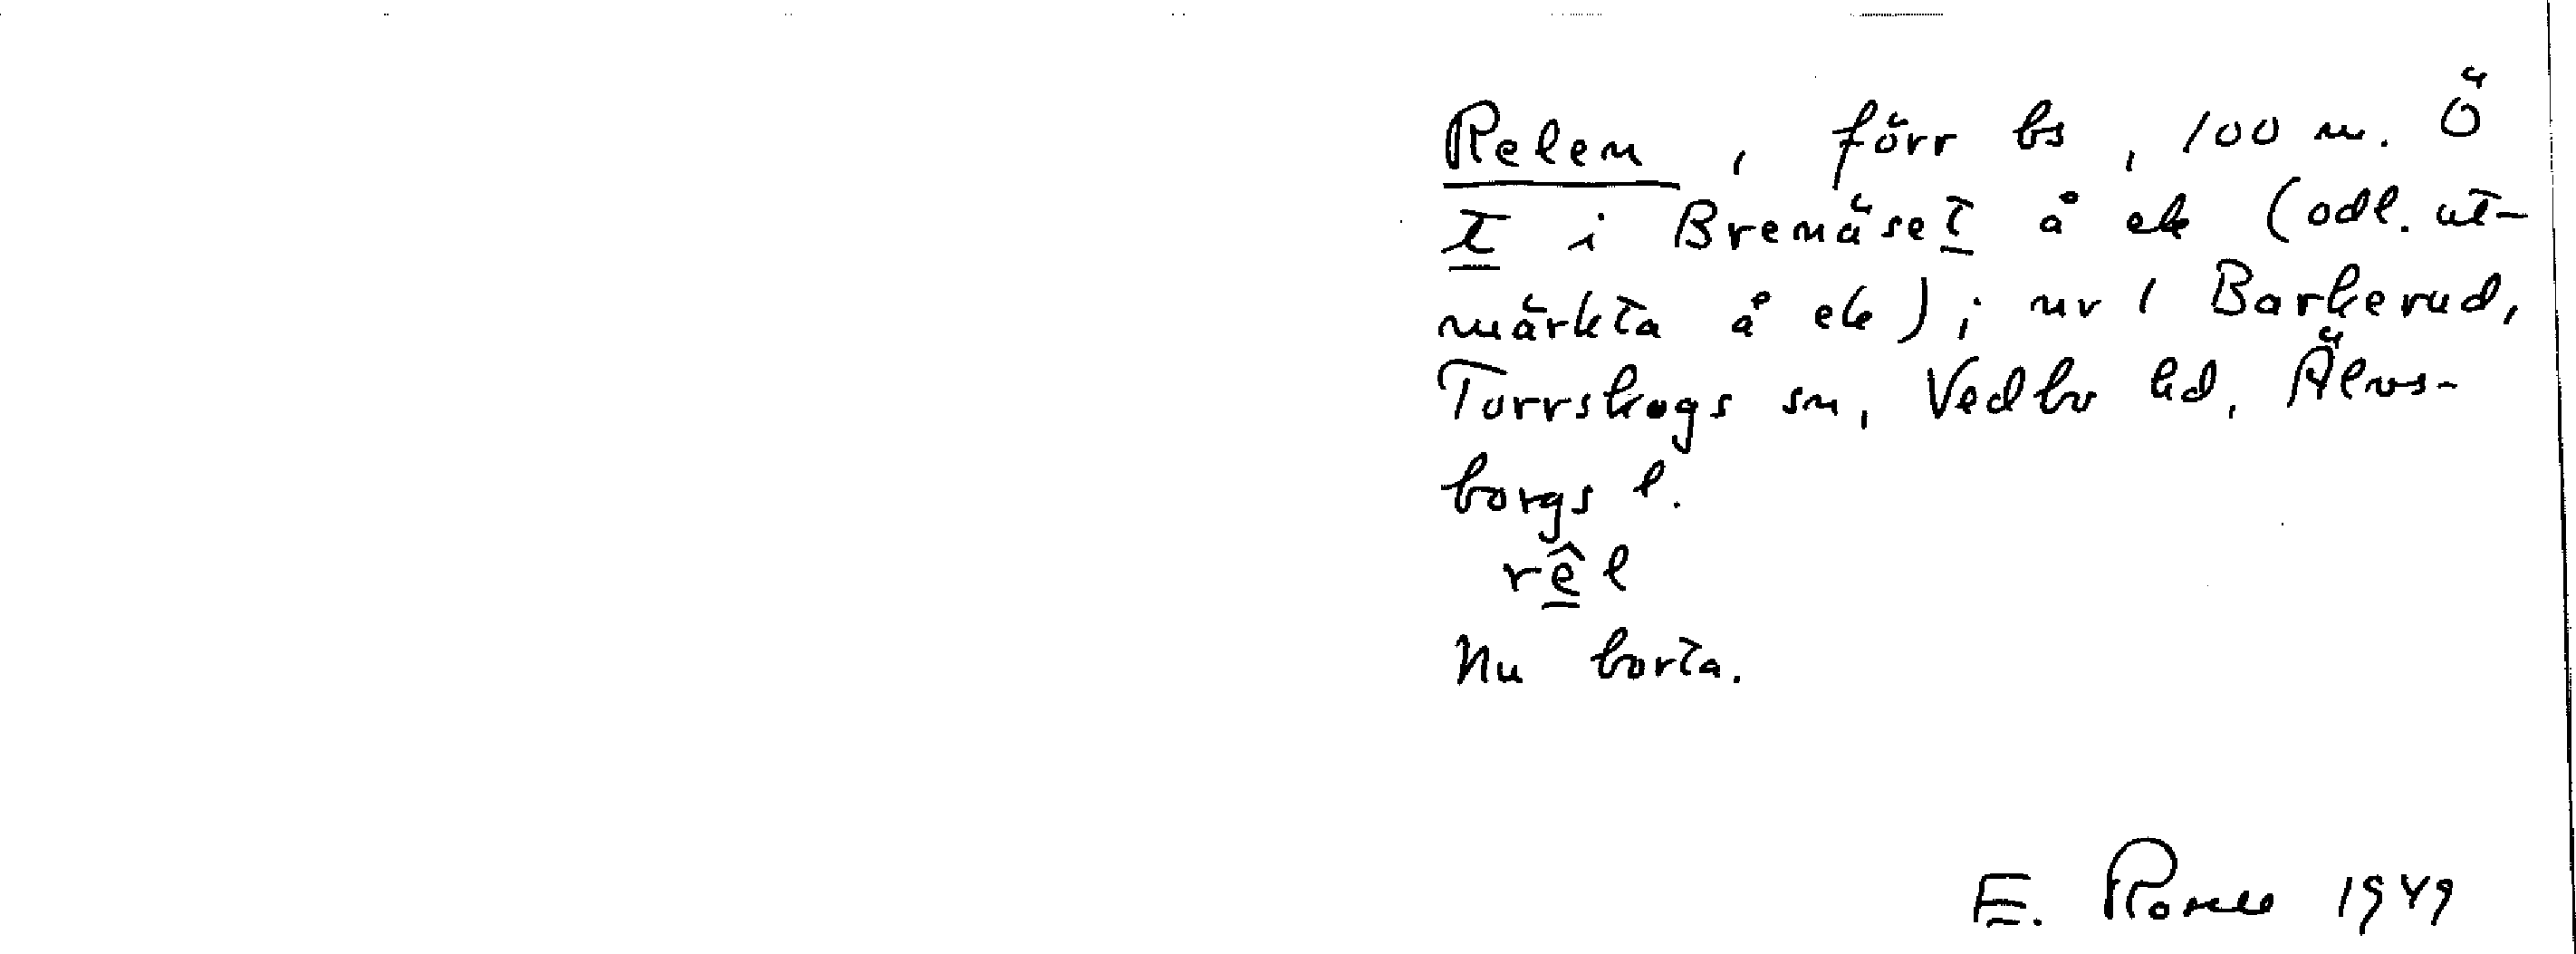 Relen, förr bs, 100 m. Ö
t i Brenäset å ek (odl. ut-
märkta å ek); nr 1 Barkerud,
Torrskogs sn, Vedbo hd, Älvs-
borgs l.
rêl
Nu borta.
E. 1949